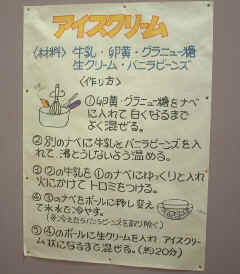 アイスクリーム
〈材料〉 牛乳・卵黄・グラニュー糖
生クリーム・バニラビーンズ
〈作り方〉
①卵黄・グラニュー糖をナベ
に入れて白くなるまで
よく混ぜる。
②別のナベに牛乳とバニラビーンズを入
れて、沸とうしないよう温める。
③②の牛乳を①のナベにゆっくりと入れ
火にかけてトロミをつける。
④③のナベをボールに移し替え
て氷水で冷やす。
(※冷えたらバニラビーンズを取り除く)
⑤④のボールに生クリームを入れ アイスクリー
ム状になるまで混ぜる。(約20分)